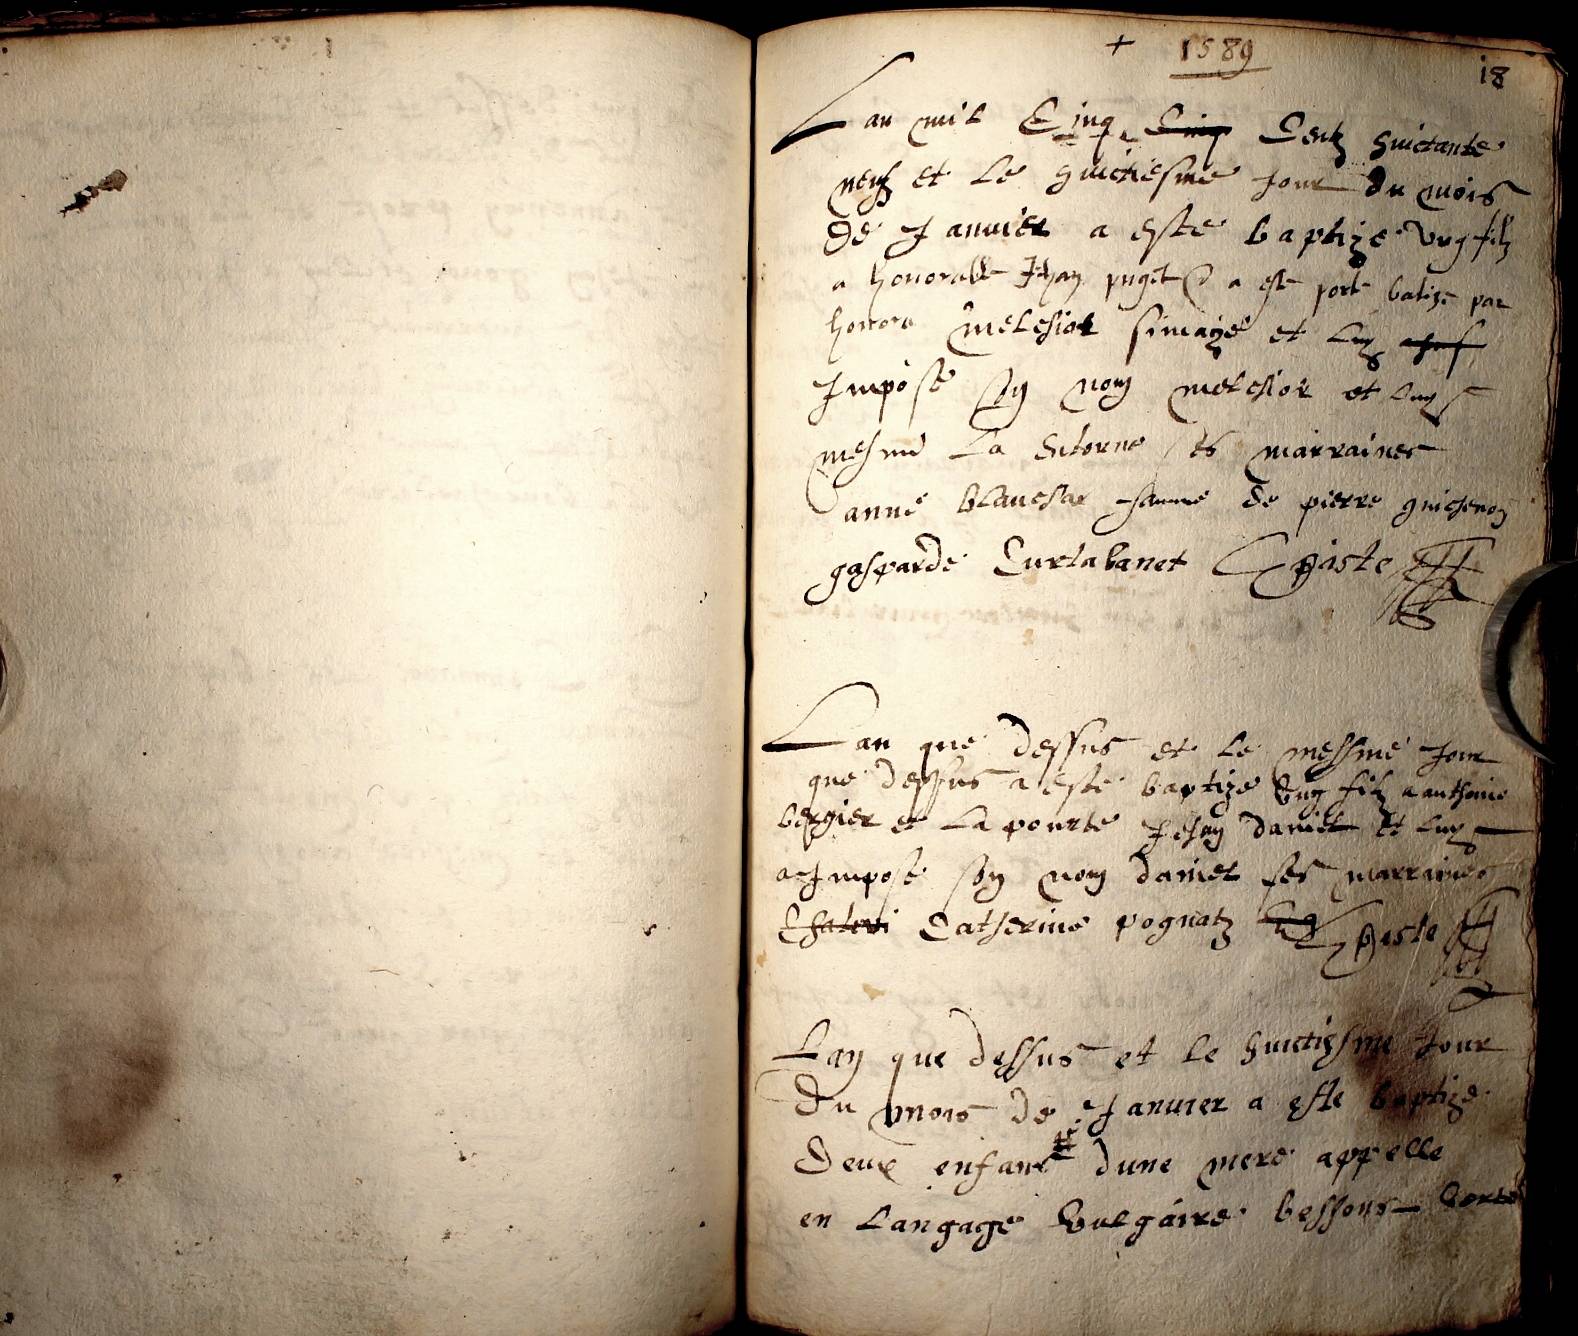 + 1589
18
Lan mil Cinq Cinq Centz huictante
neuf et le huictiesme Jour du mois
de Janvier a este baptize ung filz
a honorable Jehan puget a este porte batize par
honora melchior simaize et luy
Impose son nom melchior et luy
mesme La marraines
anne blanchar famme de pierre guichenon
gasparde Curtabanet
Lan que dessus et le mesme Jour
que dessus a este baptize Ung filz a anthoine
bergier et La pourte Jehan daniel et luy
a Impose son nom daniel ses marraines
Catherine pognatz
Lan que dessus et le huictiesme Jour
Du mois de Janvier a este baptize
Deux enfans dune mere appelle
en Langage Vulgaire bessons